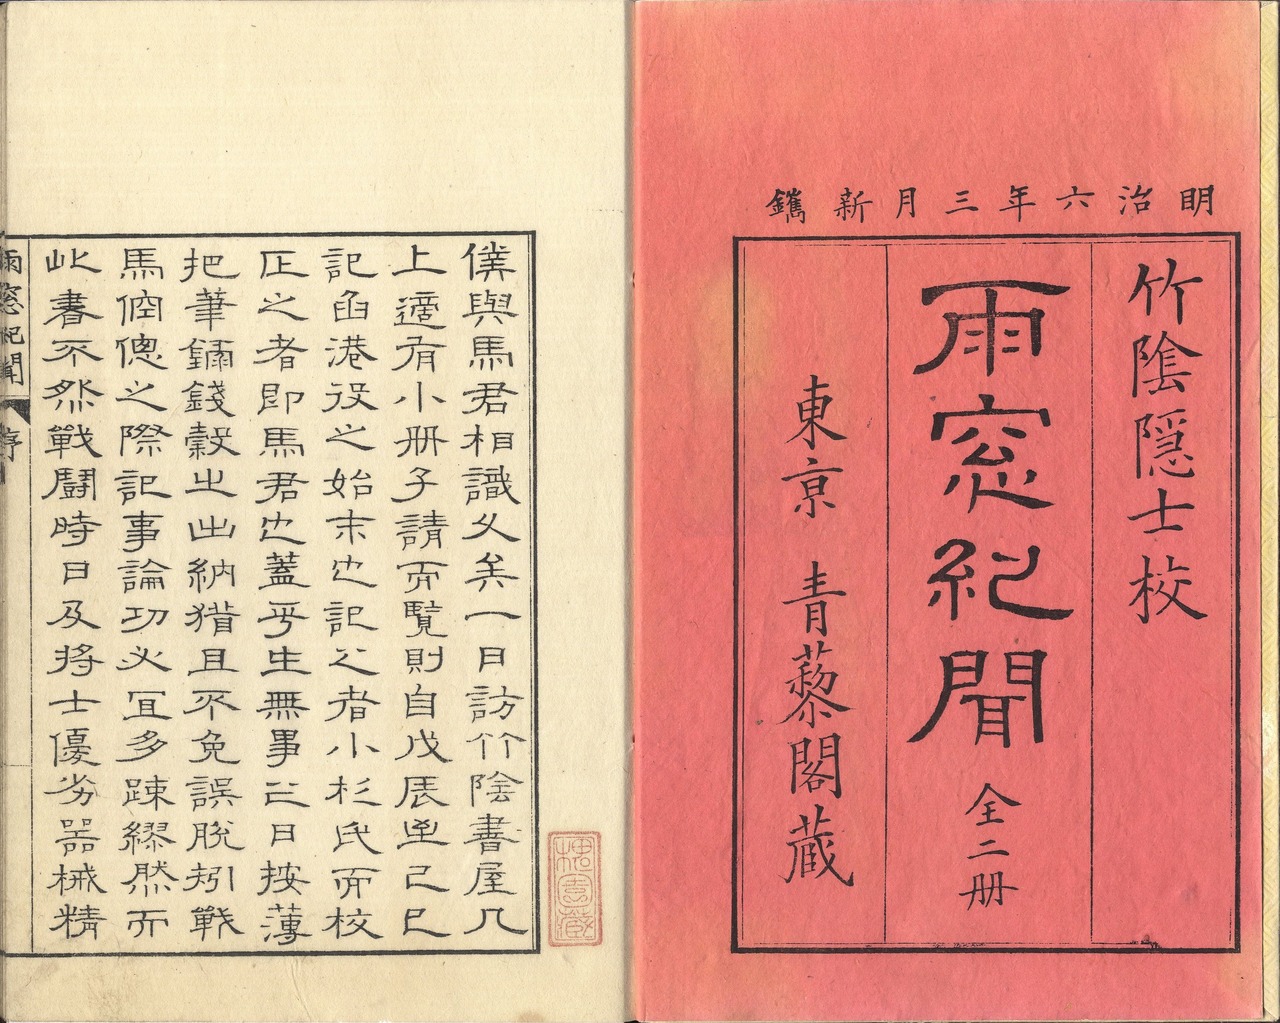 明治六年三月新鐫
竹陰隱士校
雨窓紀聞 全二册
東京 青藜閣蔵
僕與馬君相識久矣一日訪竹陰書屋几
上適有小册子請而覧則自戊辰至己巳
記函港役之始末也記之者小杉氏而校
正之者即馬君也蓋平生無事之日按薄
把筆録錢穀之出納猶且不免誤脱矧戰
馬倥偬之際記事論功必宜多踈繆然而
此書不然戰鬪時日及将士優劣器械精
雨窓紀聞 序